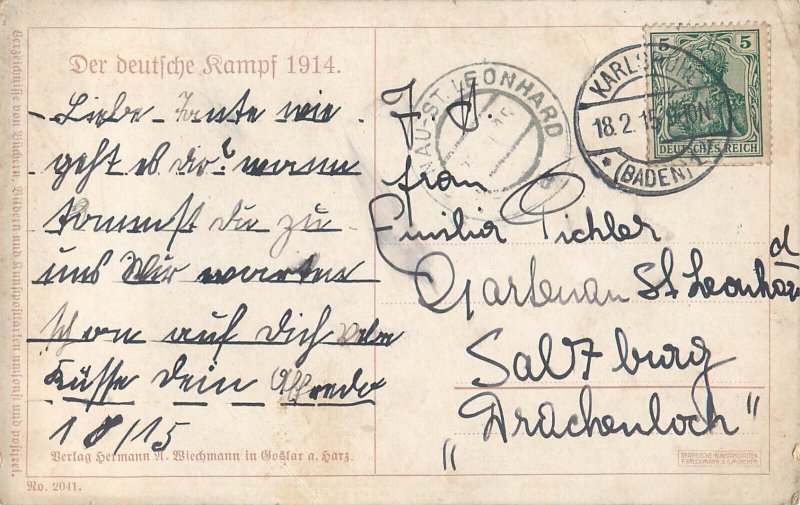 Der deutsche Kampf 1914.
Liebe Tante wie
geht es dir? wann
kommst du zu
uns Wir warten
schon auf Dich viele
Küsse Dein Alfredo
18/15
Verlag Hermann A. Wiechmann in Goslar a. Harz.
No. 2041.
Verzeichnisse von Büchern, Bildern und Kunstpostkarten umsonst und postfrei.
GNAU-ST. LEONHARD
15
KARLSRUHE
18.2.15 9-10N
* (BADEN) 1
5 5
DEUTSCHES REICH
J. H.
frau
Emilia Pichler
Gartenau St Leonhard
Salzburg
„Drachenloch"
GRAPHISCHE KUNSTANSTALTEN
F. BRUCKMANN A.G. MÜNCHEN